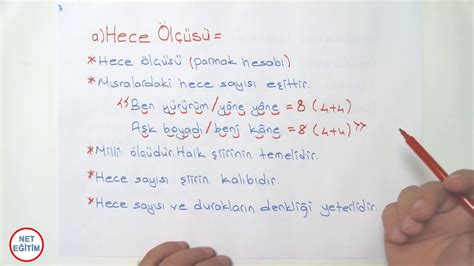 a) Hece Ölçüsü =
* Hece ölçüsü (parmak hesabı)
* Mısralardaki hece sayısı eşittir.
“Ben yürürüm / yâne yâne = 8 (4+4)
Aşk boyadı / beni kâne = 8 (4+4)”
* Milli ölçüdür. Halk şiirinin temelidir.
* Hece sayısı şiirin kalıbıdır.
* Hece sayısı ve durakların denkliği yeterlidir.
NET
EĞİTİM